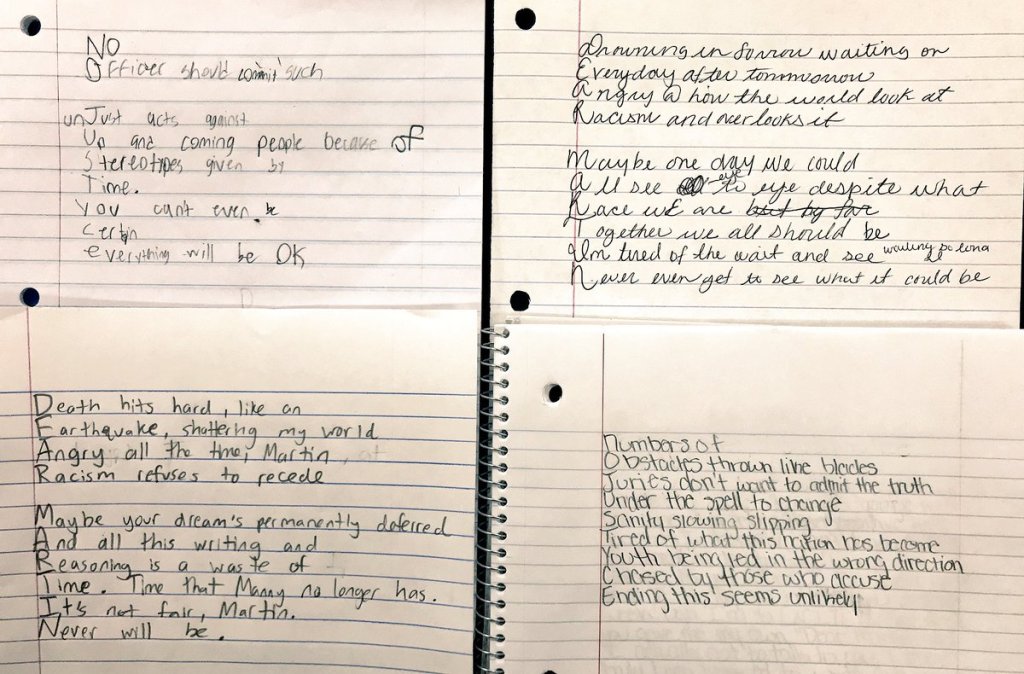 NO
Officer should commit such
unJust acts against
Up and coming people because of
Stereotypes given by
Time.
You can't even be
Certin
everything will be OK
Drowning in Sorrow waiting on
Everyday after tommorrow
Angry @ how the world look at
Racism and overlooks it
Maybe one day we could
All see eye to eye despite what
Race wE are but by far
Together we all should be
I'm tired of the wait and see waiting so long
Never even get to see what it could be
Death hits hard, like an
Earthquake, shattering my world
Angry all the time, Martin
Racism refuses to recede
Maybe your dream's permanently deferred
And all this writing and
Reasoning is a waste of
Time. Time that Manny no longer has.
It's not fair, Martin.
Never will be.
Numbers of
Obstacles thrown like blades
Juries don't want to admit the truth
Under the spell to change
Sanity slowing slipping
Tired of what this nation has become
Youth being led in the wrong direction
Chased by those who accuse
Ending this seems unlikely